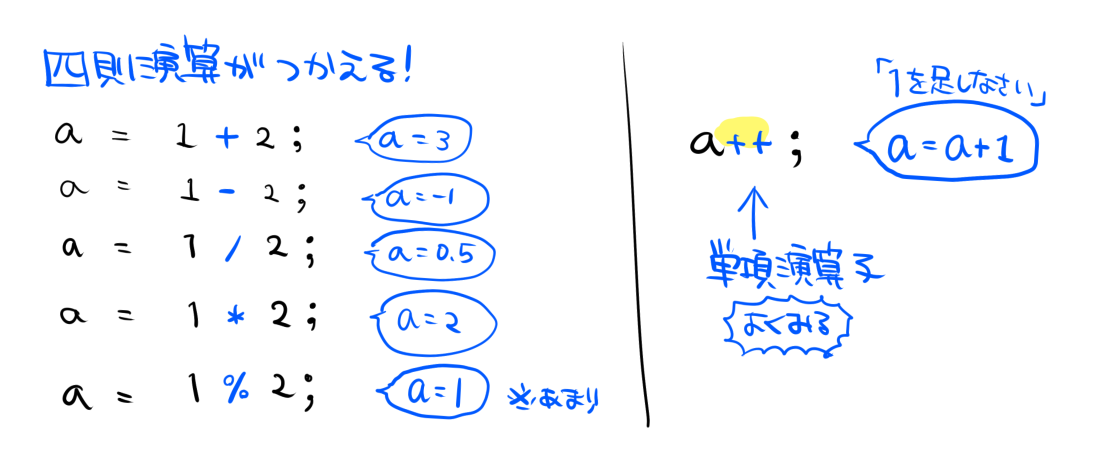 四則演算がつかえる!
a = 1 + 2; a = 3
a = 1 - 2; a = -1
a = 1 / 2; a = 0.5
a = 1 * 2; a = 2
a = 1 % 2; a = 1 ※あまり
「1を足しなさい」
a++; a = a+1
単項演算子
よくみる